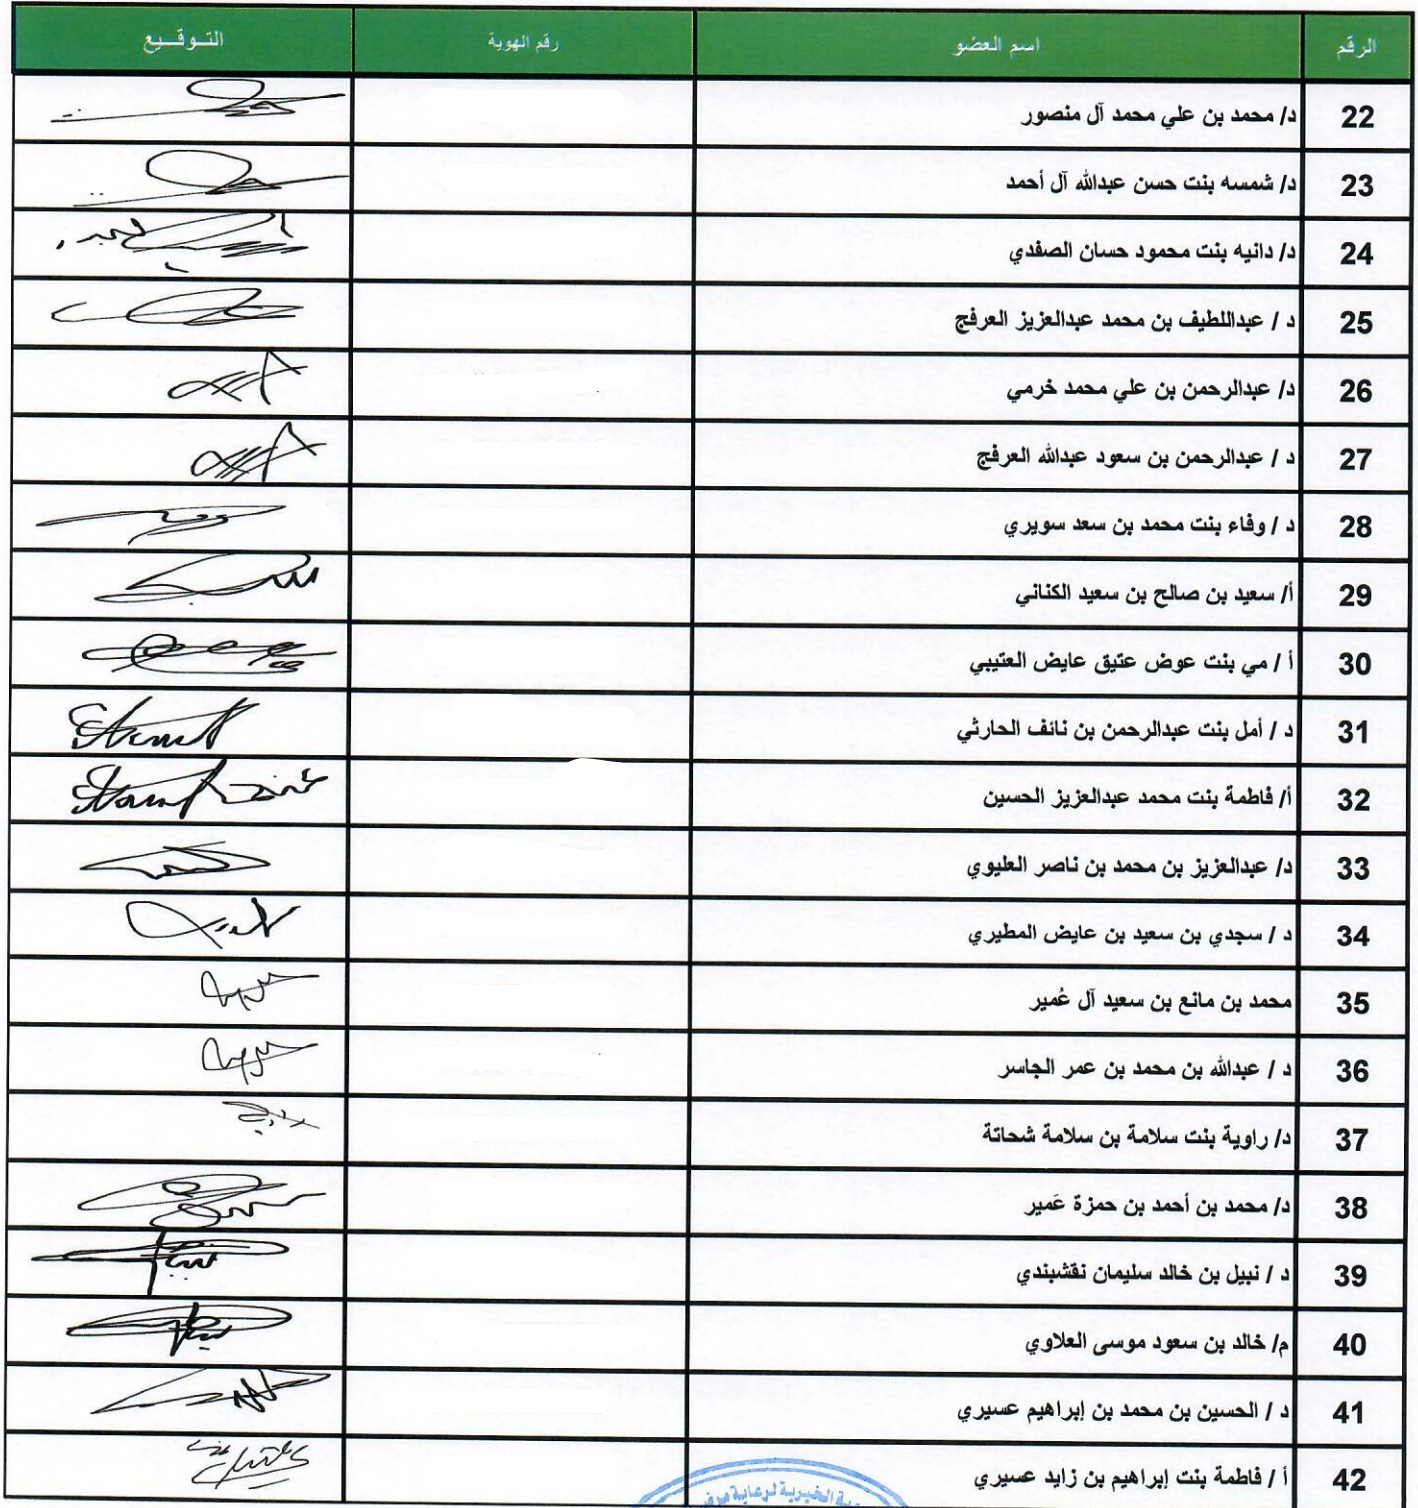 الرقم اسم العضو رقم الهوية التـوقـيع
22 د/ محمد بن علي محمد آل منصور
23 د/ شمسه بنت حسن عبدالله آل أحمد
24 د/ دانيه بنت محمود حسان الصفدي
25 د / عبداللطيف بن محمد عبدالعزيز العرفج
26 د/ عبدالرحمن بن علي محمد خرمي
27 د / عبدالرحمن بن سعود عبدالله العرفج
28 د / وفاء بنت محمد بن سعد سويري
29 أ/ سعيد بن صالح بن سعيد الكناني
30 أ / مي بنت عوض عتيق عايض العتيبي
31 د / أمل بنت عبدالرحمن بن نائف الحارثي
32 أ/ فاطمة بنت محمد عبدالعزيز الحسين
33 د/ عبدالعزيز بن محمد بن ناصر العليوي
34 د / سجدي بن سعيد بن عايض المطيري
35 محمد بن مانع بن سعيد آل عُمير
36 د / عبدالله بن محمد بن عمر الجاسر
37 د/ راوية بنت سلامة بن سلامة شحاتة
38 د/ محمد بن أحمد بن حمزة عَمير
39 د / نبيل بن خالد سليمان نقشبندي
40 م/ خالد بن سعود موسى العلاوي
41 د / الحسين بن محمد بن إبراهيم عسيري
42 أ / فاطمة بنت إبراهيم بن زايد عسيري
الخيرية لرعاية